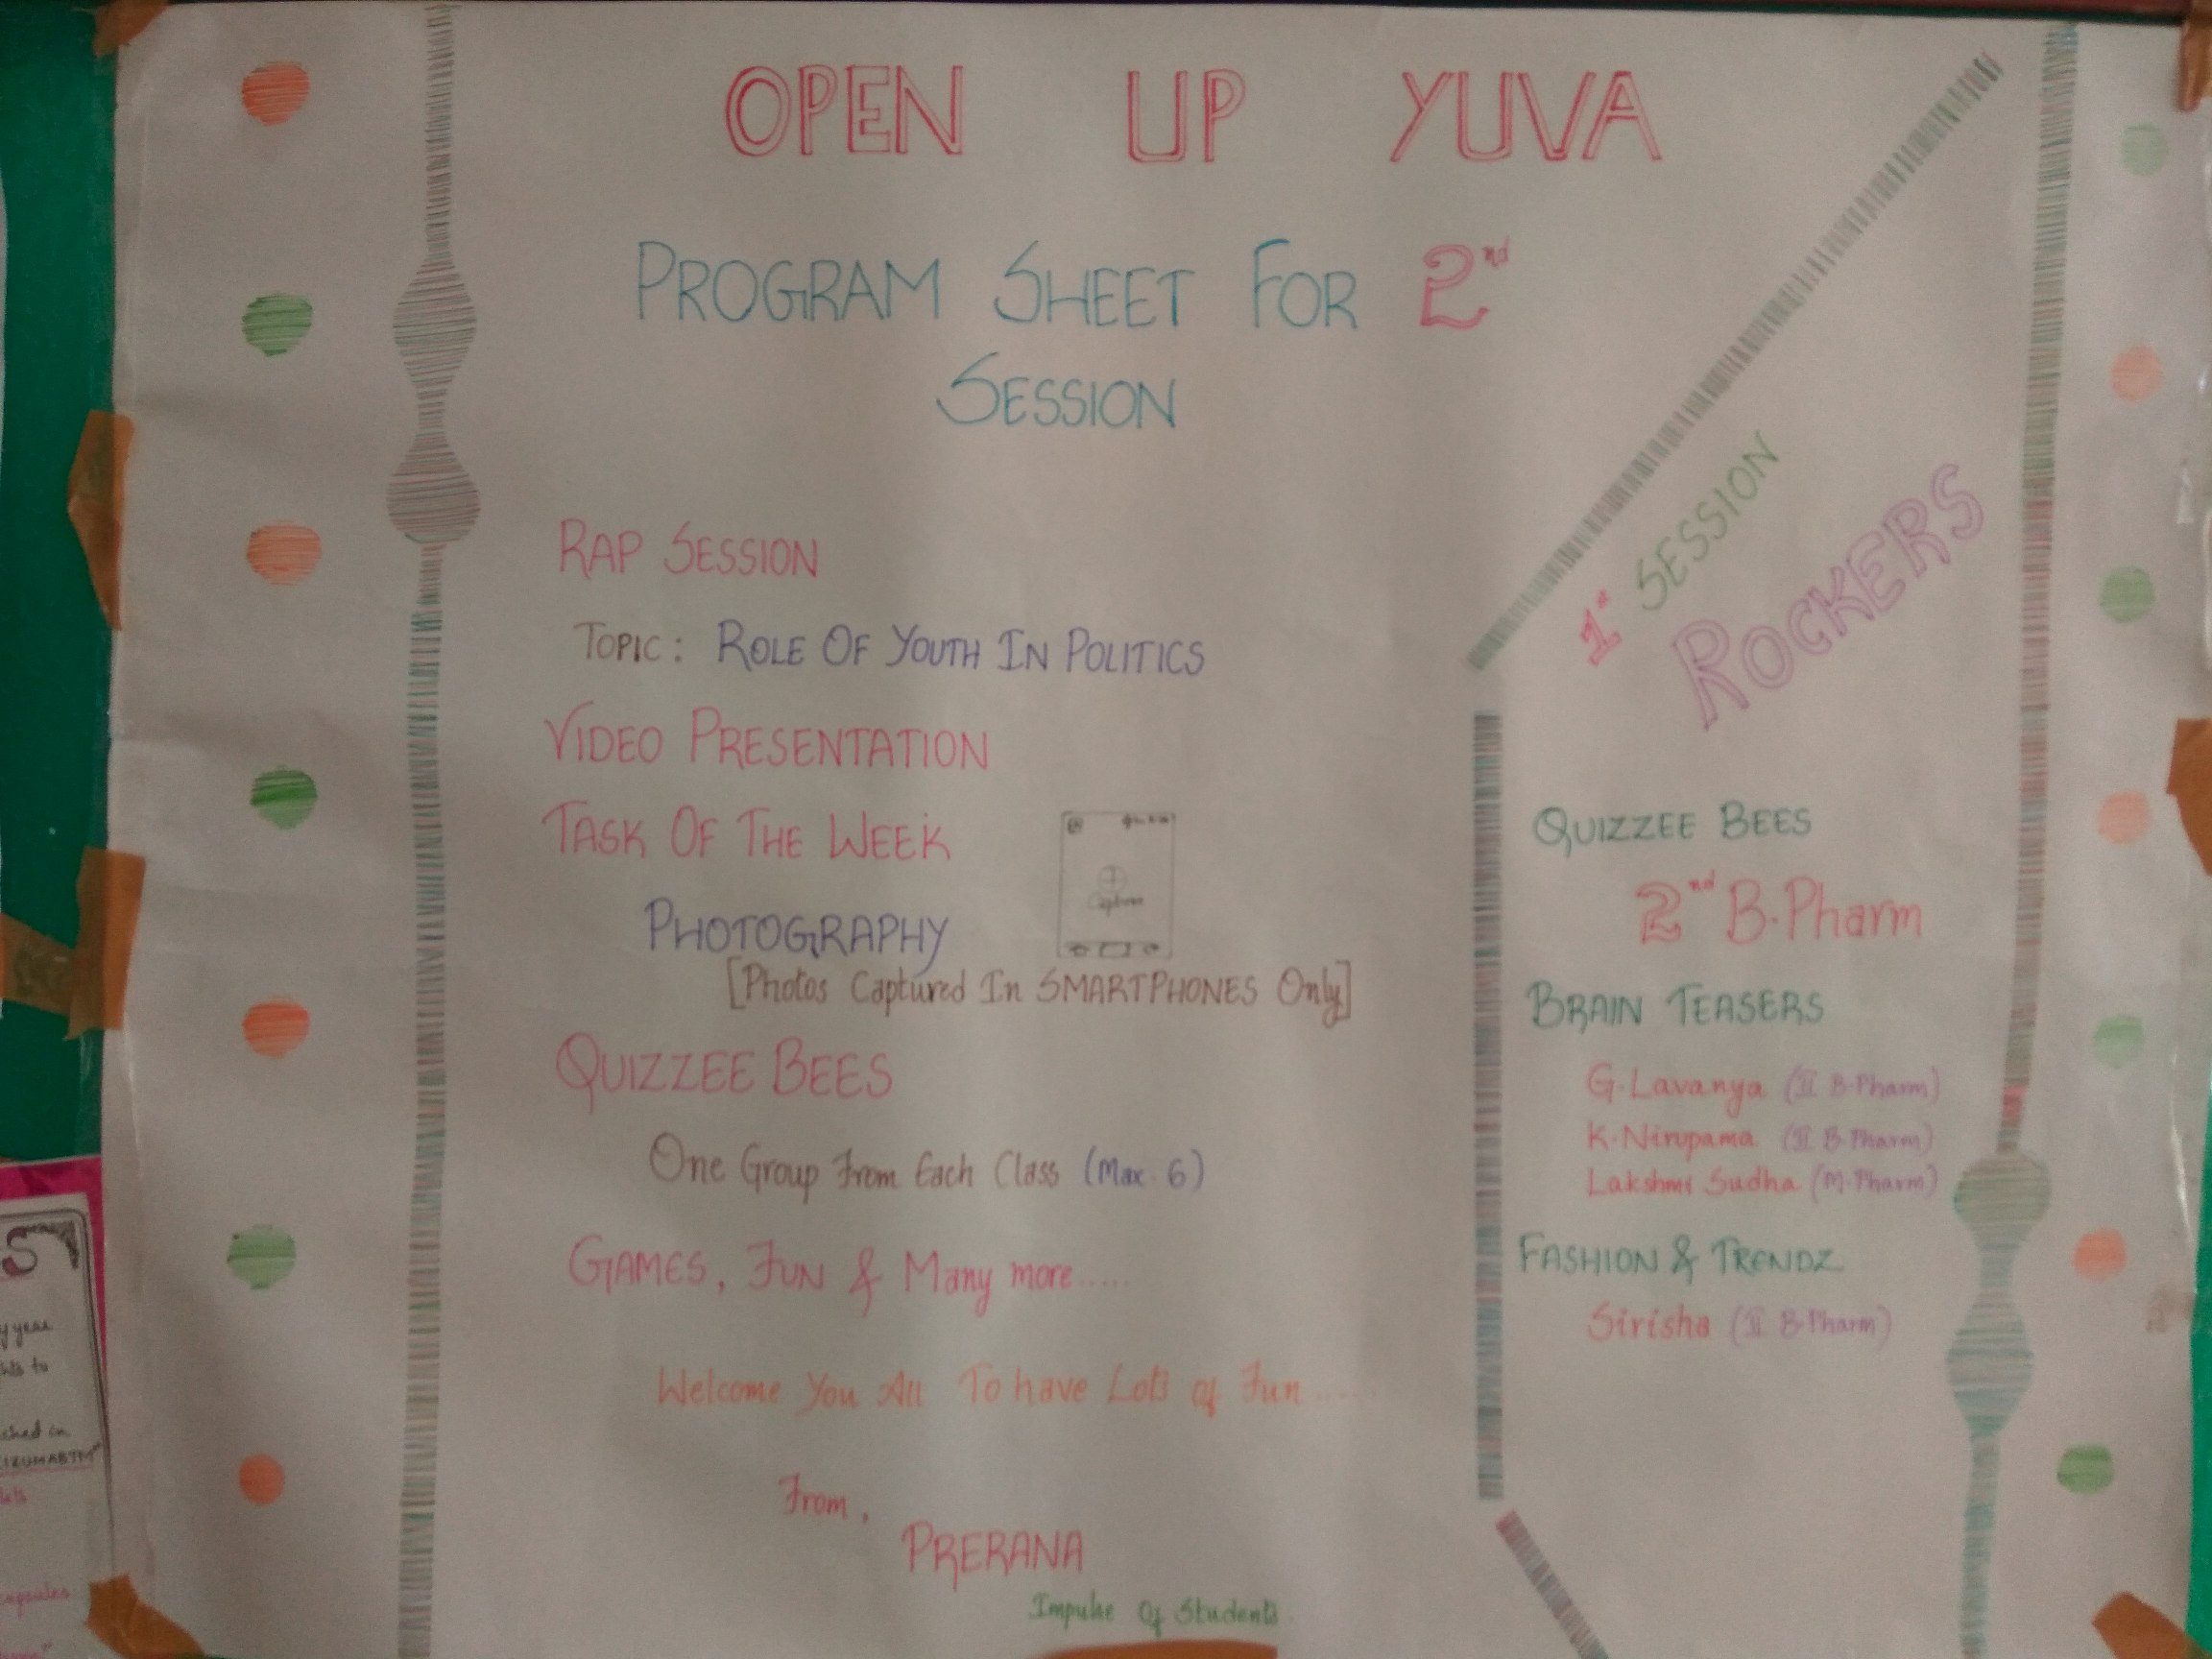 OPEN UP YUVA
PROGRAM SHEET FOR 2nd
SESSION
RAP SESSION
TOPIC: ROLE OF YOUTH IN POLITICS
VIDEO PRESENTATION
TASK OF THE WEEK
PHOTOGRAPHY
Capture
[Photos Captured In SMARTPHONES Only]
QUIZZEE BEES
One Group From Each Class (Max. 6)
GAMES, FUN & Many more.....
Welcome You All To have Lots of Fun......
From,
PRERANA
Impulse Of Students
1st SESSION
ROCKERS
QUIZZEE BEES
2nd B.Pharm
BRAIN TEASERS
G.Lavanya (II B.Pharm)
K.Nirupama (II B.Pharm)
Lakshmi Sudha (M.Pharm)
FASHION & TRENDZ
Sirisha (II B.Pharm)
S
year
to
in
capsules